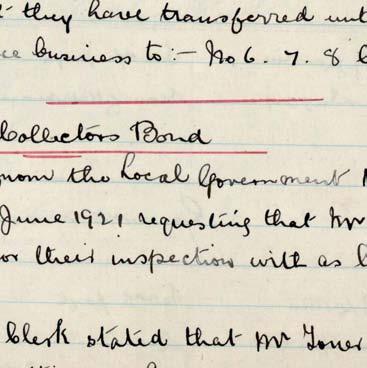 they have transferred
business to :- No 6. 7. 8
Collectors Bond
from the Local Government
June 1921 requesting that Mr
for their inspection with as
Clerk stated that Mr Toner